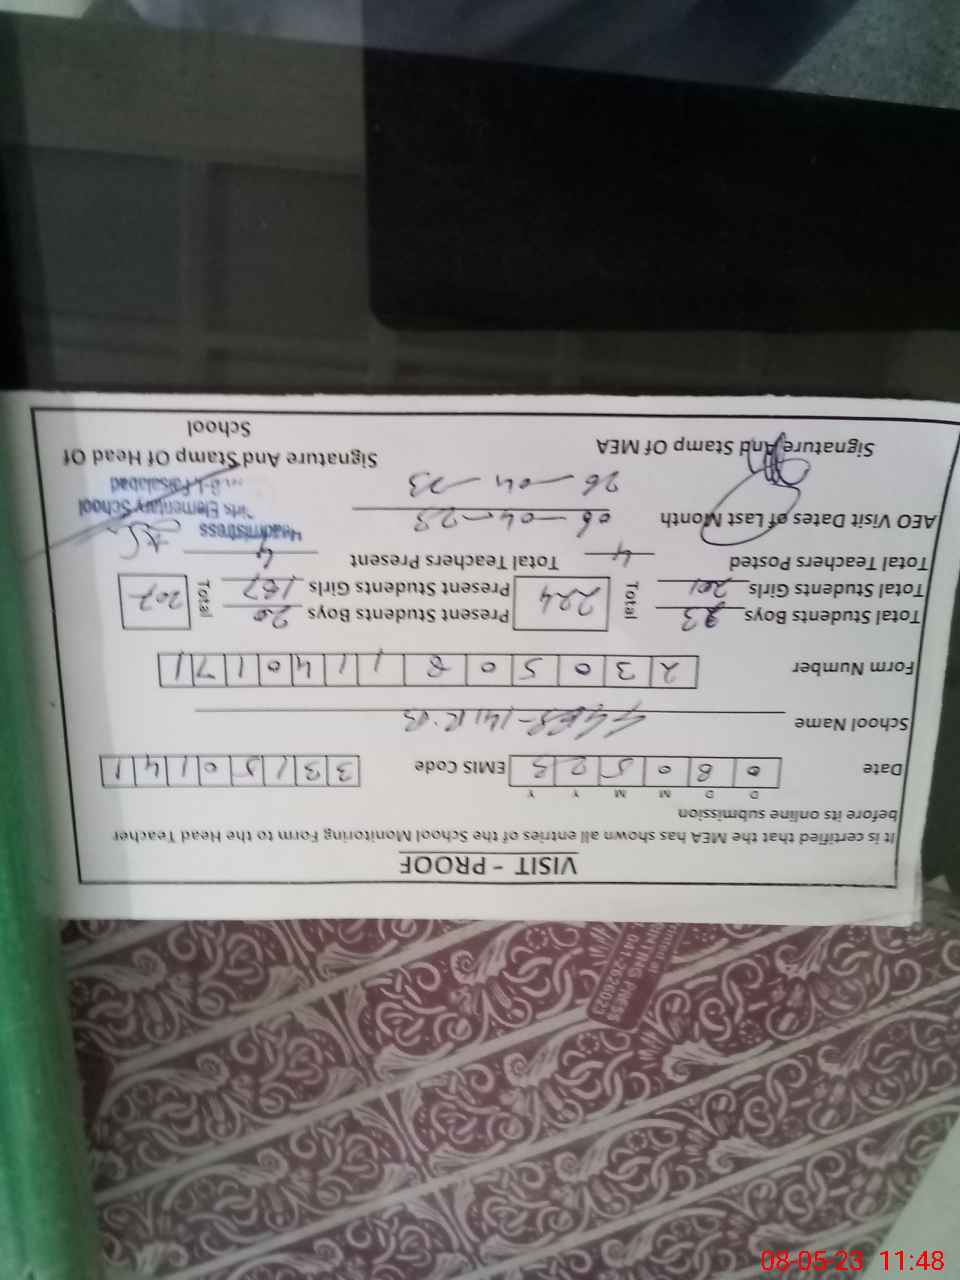 VISIT - PROOF
It is certified that the MEA has shown all entries of the School Monitoring Form to the Head Teacher
before its online submission
D D M M Y Y
Date 0 8 0 5 2 3 EMIS Code 3 3 1 5 0 1 4 1
School Name
Form Number 2 3 0 5 0 8 1 1 4 0 1 7 1
Total Students Boys 23 Total 224 Present Students Boys 20 Total 207
Total Students Girls 201 Present Students Girls 187
Total Teachers Posted 4 Total Teachers Present 4
AEO Visit Dates of Last Month 06-04-23
26-04-23
Headmistress
Girls Elementary School
Faisalabad
Signature And Stamp Of MEA Signature And Stamp Of Head Of
School
PRINTING PRESS
041-2626023
08-05-23 11:48